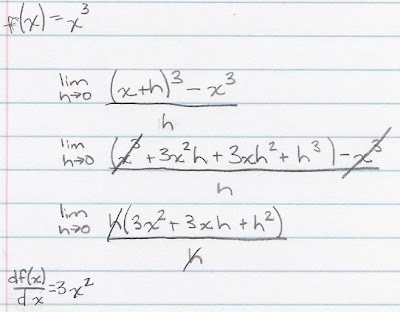 f(x)=x³
lim h→0 (x+h)³-x³ / h
lim h→0 (x³+3x²h+3xh²+h³)-x³ / h
lim h→0 h(3x²+3xh+h²) / h
df(x)/dx=3x²